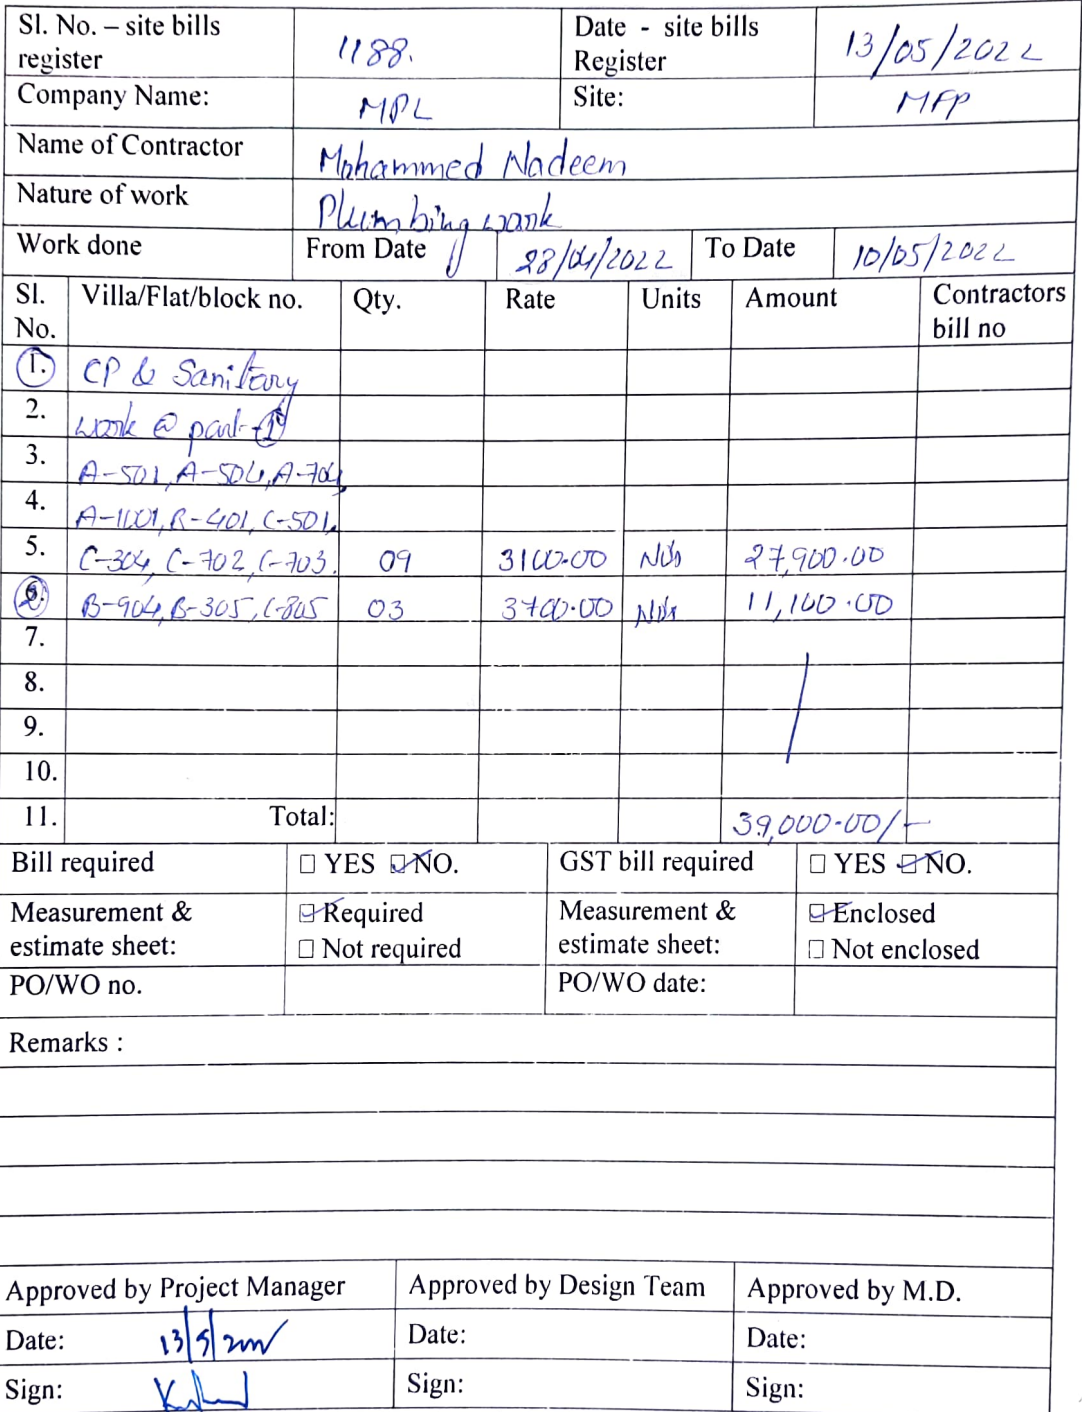 Sl. No. – site bills register 1188. Date - site bills Register 13/05/2022
Company Name: MPL Site: MFP
Name of Contractor Mohammed Nadeem
Nature of work Plumbing work
Work done From Date 28/04/2022 To Date 10/05/2022
Sl. No. Villa/Flat/block no. Qty. Rate Units Amount Contractors bill no
1. CP & Sanitary
2. work @ part-1
3. A-501, A-504, A-704,
4. A-1001, B-401, C-501,
5. C-304, C-702, C-703. 09 3100.00 Nos 27,900.00
6. B-904, B-305, C-805 03 3700.00 Nos 11,100.00
7.
8.
9.
10.
11. Total: 39,000.00/-
Bill required □ YES ☑ NO. GST bill required □ YES ☑ NO.
Measurement & estimate sheet: ☑ Required □ Not required Measurement & estimate sheet: ☑ Enclosed □ Not enclosed
PO/WO no. PO/WO date:
Remarks :
Approved by Project Manager Approved by Design Team Approved by M.D.
Date: 13/5/2022 Date: Date:
Sign: Sign: Sign: